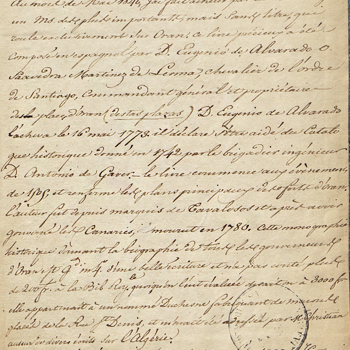 au mois de Mai 1846, j'ai fait
un Ms. de plus importants, mais sans titre, qui
exclusivement sur Oran; ce livre précieux a été
composé en espagnol par D. Eugenio de Alvarado o
Saavedra Martinez de Lerma, chevalier de l'ordre
de Santiago, Commandant général et propriétaire
place d'Oran (de estas plazas) D. Eugenio de Alvarado
l'acheva le 16 mai 1773. il déclare aidé du Catalo
que historique donné en 1742 par le brigadier ingénieur
D. Antonio de Gaver. le livre commence aux événemens
de 1505 et renferme les plans principaux des forts d'Oran.
l'auteur fut depuis marquis de Tavalosos et après avoir
gouverné les Canaries, mourut en 1780. Cette monographie
historique donnant la biographie de tous les gouverneurs
d'Oran in 4. d'une belle écriture et n'a pas coûté plus
de 200 f. à la Bib. Roy. quoiqu'on l'eut évalué à 3000 f.
elle appartenait à un nommé Duchesne fabriquant de
glaces de la Rue St. Denis, et
auteur de divers écrits sur l'Algérie.